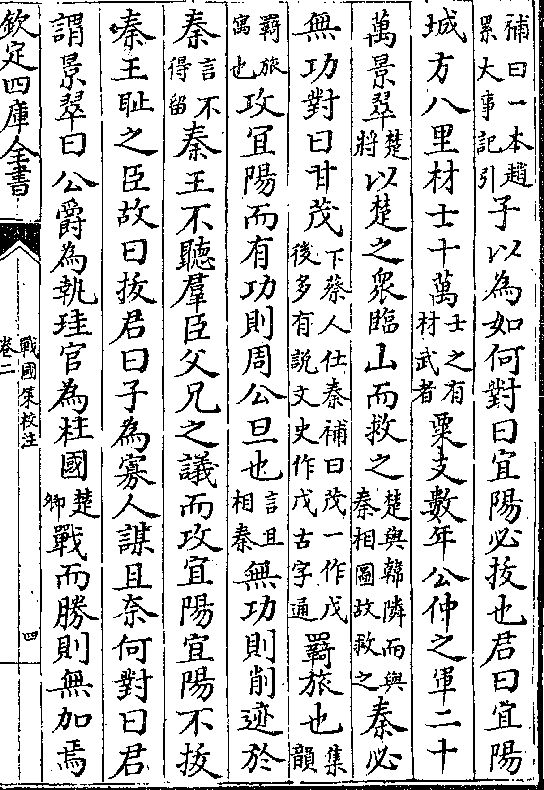 補曰一本趙累大事記引子以為如何對曰宜陽必拔也君曰宜陽
城方八里材士十萬士之有材武者粟支數年公仲之軍二十
萬景翠楚將以楚之衆臨山而救之楚與韓隣而與秦相圖故救之秦必
無功對曰甘茂下蔡人仕秦補曰茂一作戊後多有說文史作戊古字通羇旅也集韻
羇旅寓也攻宜陽而有功則周公旦也言且相秦無功則削迹於
秦言不得留秦王不聽羣臣父兄之議而攻宜陽宜陽不拔
秦王恥之臣故曰拔君曰子為寡人謀且奈何對曰君
謂景翠曰公爵為執珪官為柱國楚卿戰而勝則無加焉
欽定四庫全書
戰國策校注
卷二
四